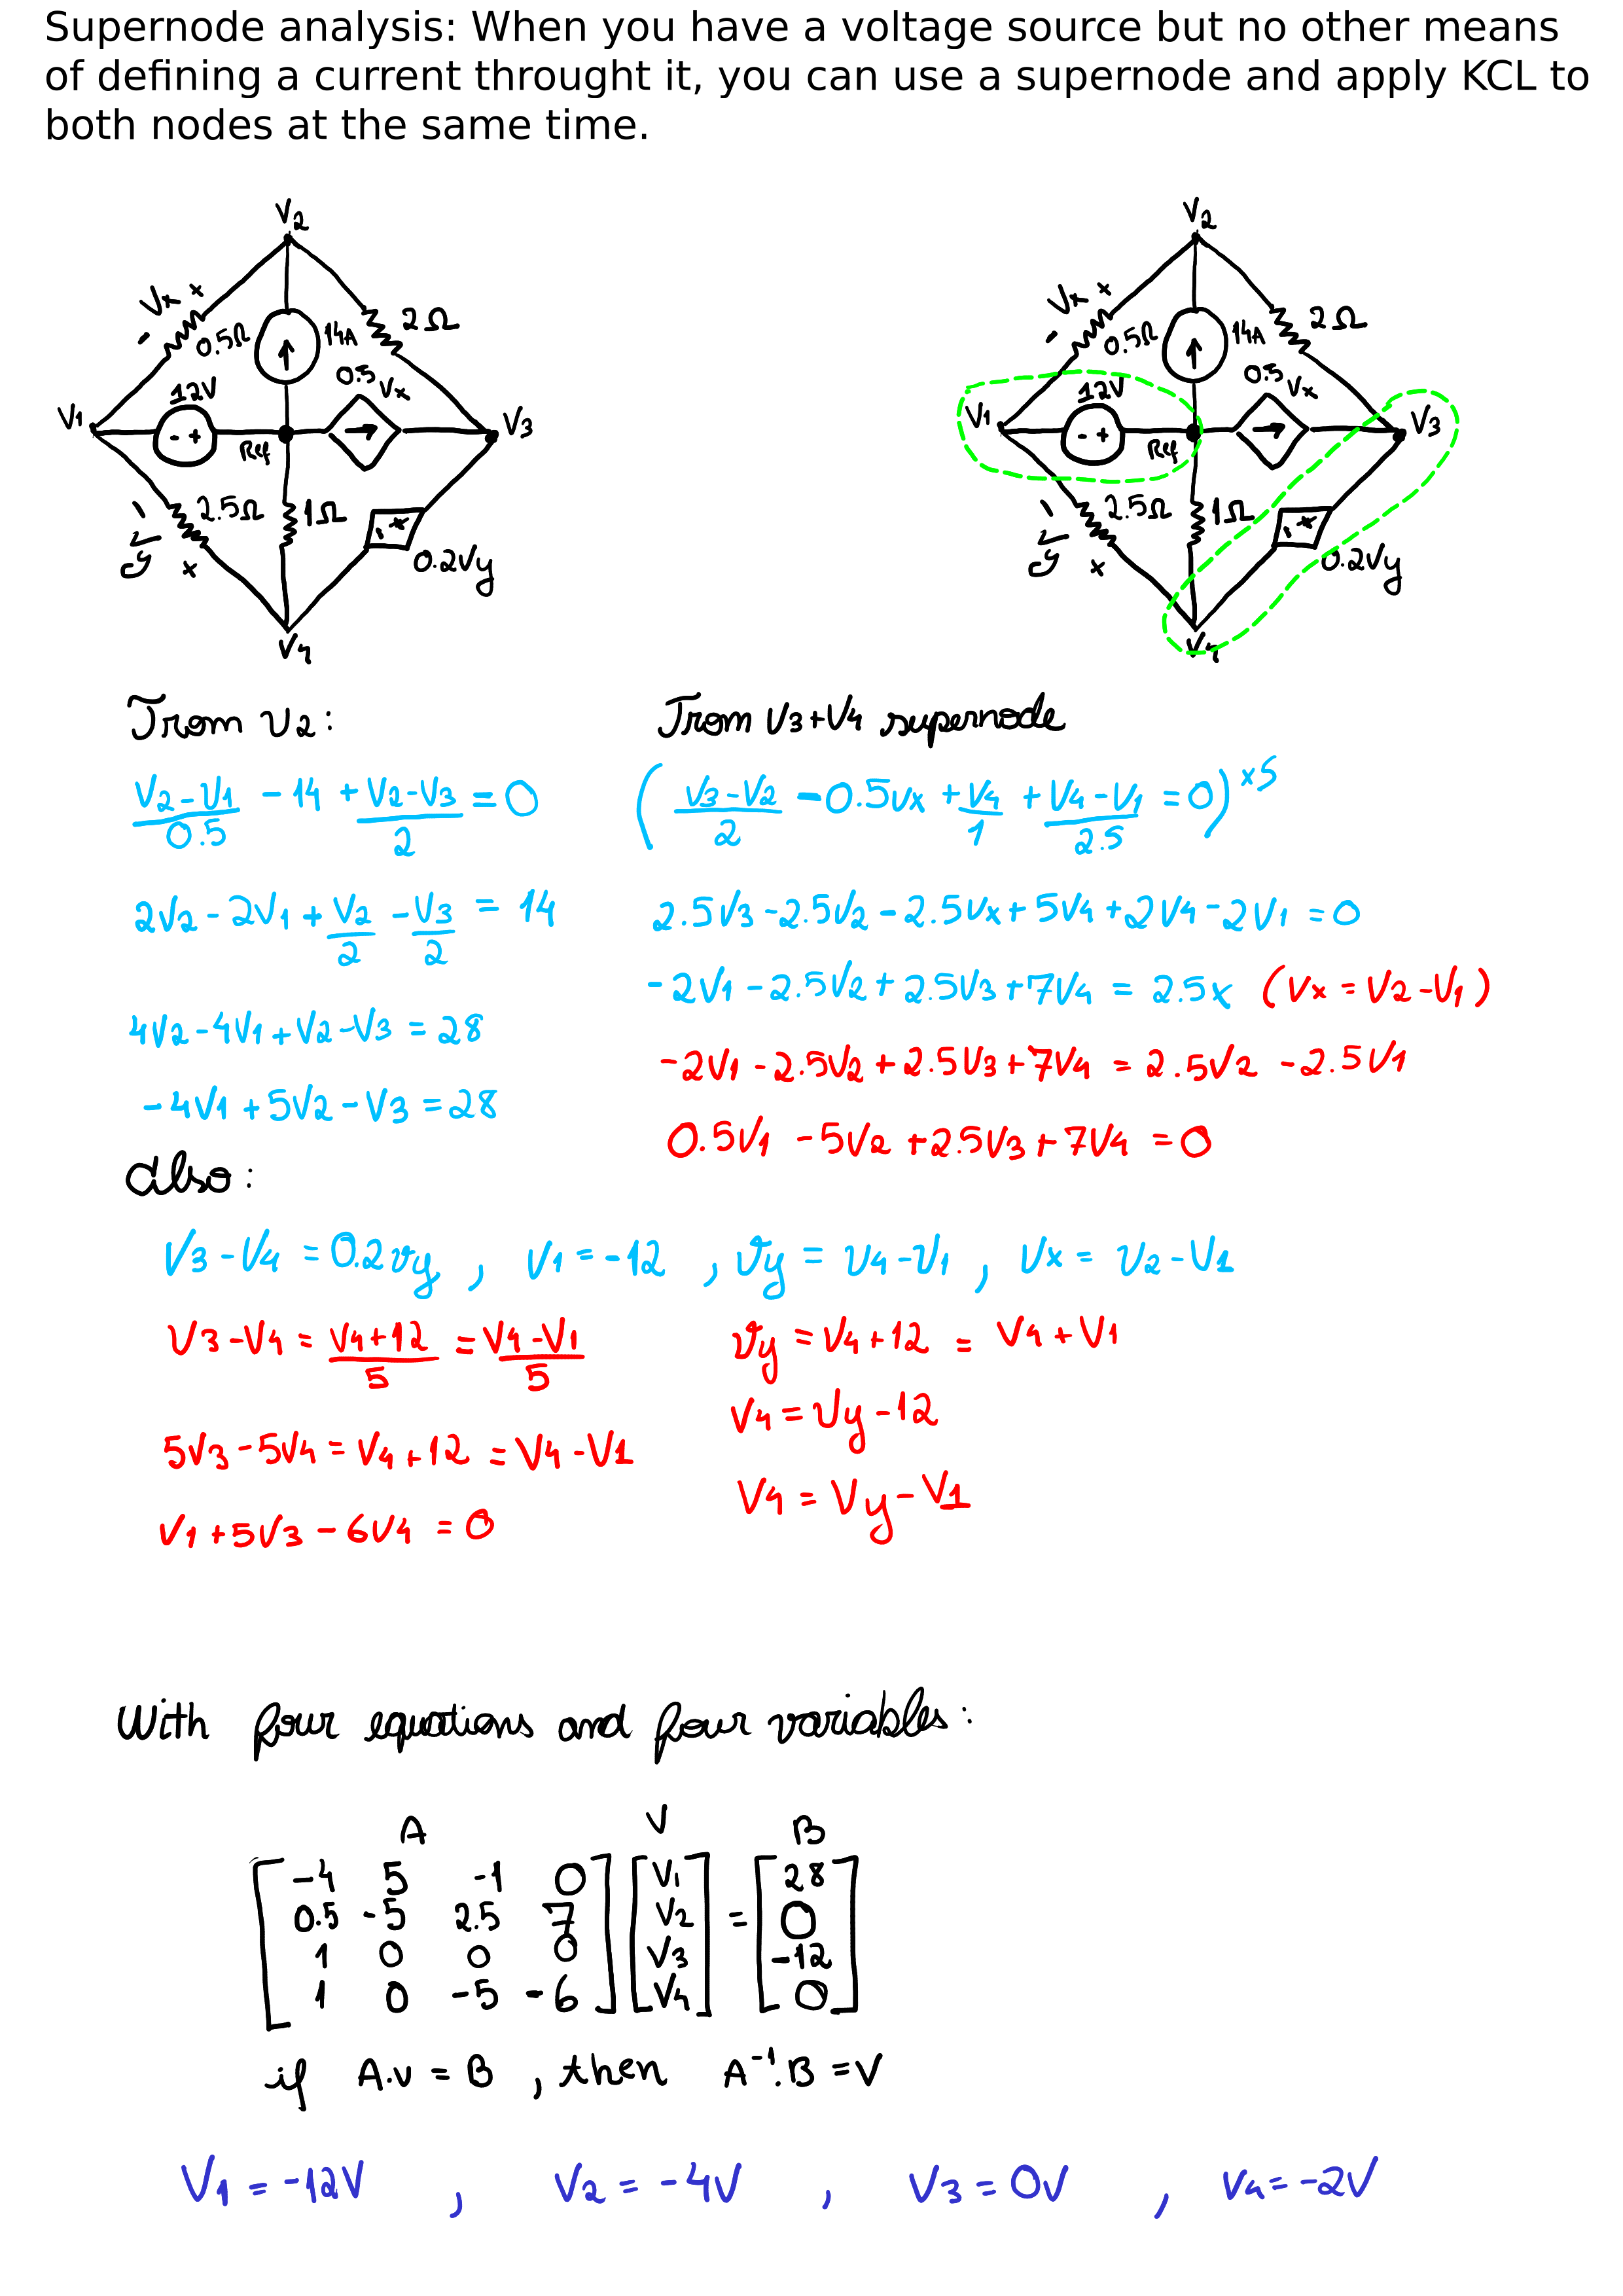 Supernode analysis: When you have a voltage source but no other means
of defining a current throught it, you can use a supernode and apply KCL to
both nodes at the same time.
V2
Vx +
-
0.5Ω
14A
2Ω
12V
0.5 Vx
V1
- +
Ref
V3
-
Vy
+
2.5Ω
1Ω
- +
0.2Vy
V4
V2
Vx +
-
0.5Ω
14A
2Ω
12V
0.5 Vx
V1
- +
Ref
V3
-
Vy
+
2.5Ω
1Ω
- +
0.2Vy
V4
From V2:
(V2-V1)/0.5 - 14 + (V2-V3)/2 = 0
2V2 - 2V1 + V2/2 - V3/2 = 14
4V2 - 4V1 + V2 - V3 = 28
-4V1 + 5V2 - V3 = 28
From V3+V4 supernode
((V3-V2)/2 - 0.5Vx + V4/1 + (V4-V1)/2.5 = 0) x5
2.5V3 - 2.5V2 - 2.5Vx + 5V4 + 2V4 - 2V1 = 0
-2V1 - 2.5V2 + 2.5V3 + 7V4 = 2.5x (Vx = V2-V1)
-2V1 - 2.5V2 + 2.5V3 + 7V4 = 2.5V2 - 2.5V1
0.5V1 - 5V2 + 2.5V3 + 7V4 = 0
Also:
V3 - V4 = 0.2Vy , V1 = -12 , Vy = V4 - V1 , Vx = V2 - V1
V3 - V4 = (V4+12)/5 = (V4-V1)/5
5V3 - 5V4 = V4 + 12 = V4 - V1
V1 + 5V3 - 6V4 = 0
Vy = V4 + 12 = V4 + V1
V4 = Vy - 12
V4 = Vy - V1
With four equations and four variables:
A V B
-4 5 -1 0 V1 28
0.5 -5 2.5 7 V2 = 0
1 0 0 0 V3 -12
1 0 -5 -6 V4 0
if A.v = B , then A⁻¹.B = V
V1 = -12V , V2 = -4V , V3 = 0V , V4 = -2V